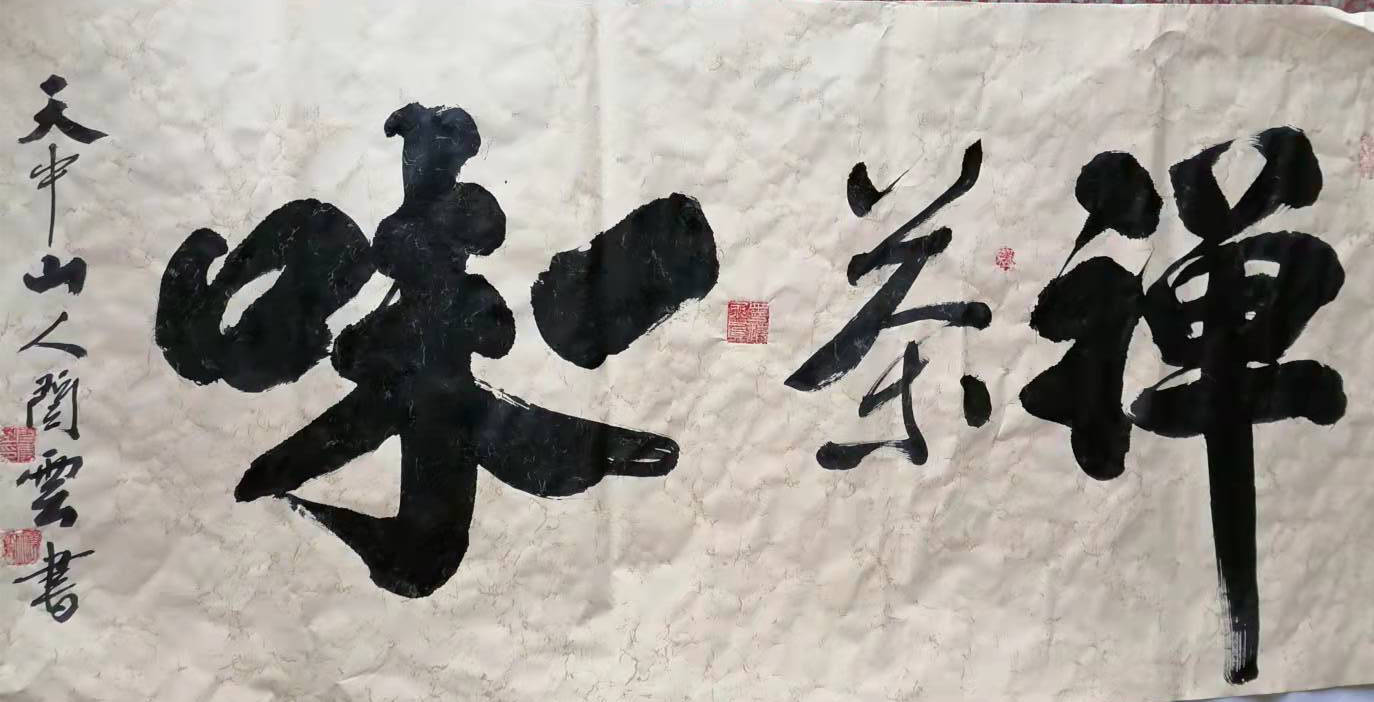 禅茶一味
天中山人閆雲書